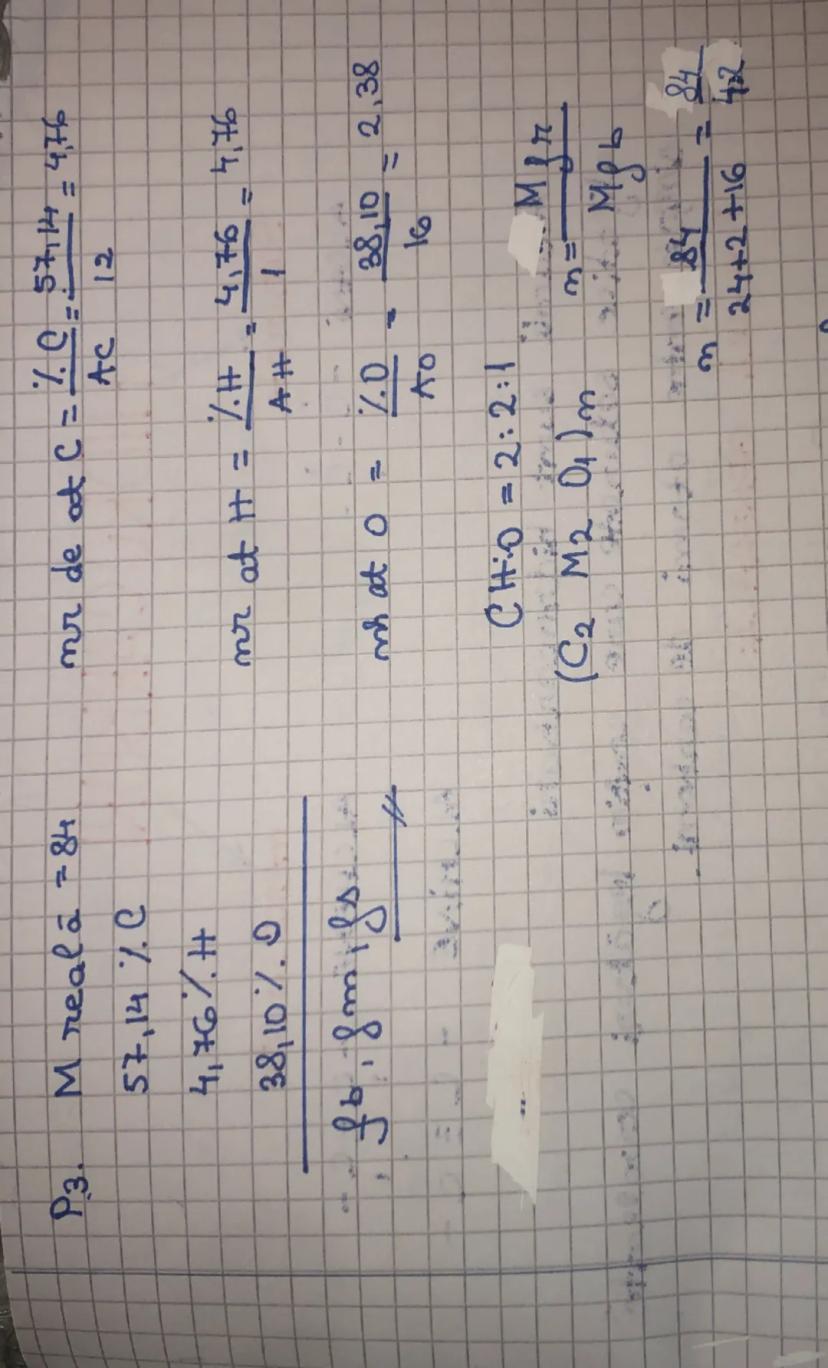 P3. M reală = 84
57,14 % C
4,76 % H
38,10 % O
fb, fm, fs
nr de at C = % C / AC = 57,14 / 12 = 4,76
nr at H = % H / A H = 4,76 / 1 = 4,76
nr at O = % O / AO = 38,10 / 16 = 2,38
C H:O = 2:2:1
(C2 H2 O1)n n = Mfr / Mfb
n = 84 / 24+2+16 = 84 / 42